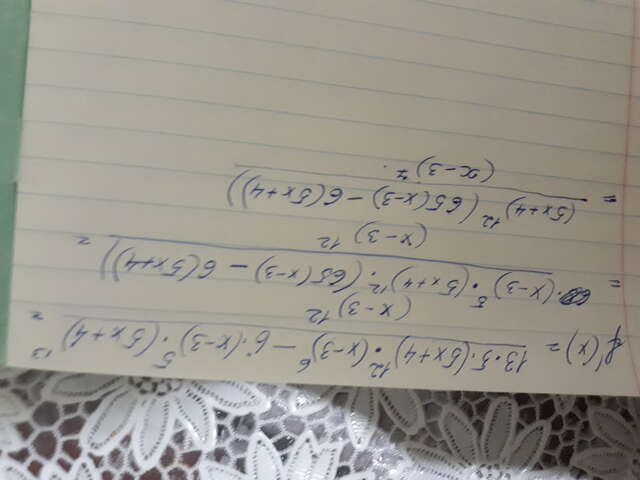 f'(x) = 13·5·(5x+4)^12·(x-3)^6 - 6·(x-3)^5·(5x+4)^13 =
(x-3)^12
= (x-3)^5·(5x+4)^12·(65(x-3) - 6(5x+4)) =
(x-3)^12
= (5x+4)^12 (65(x-3) - 6(5x+4))
(x-3)^7.